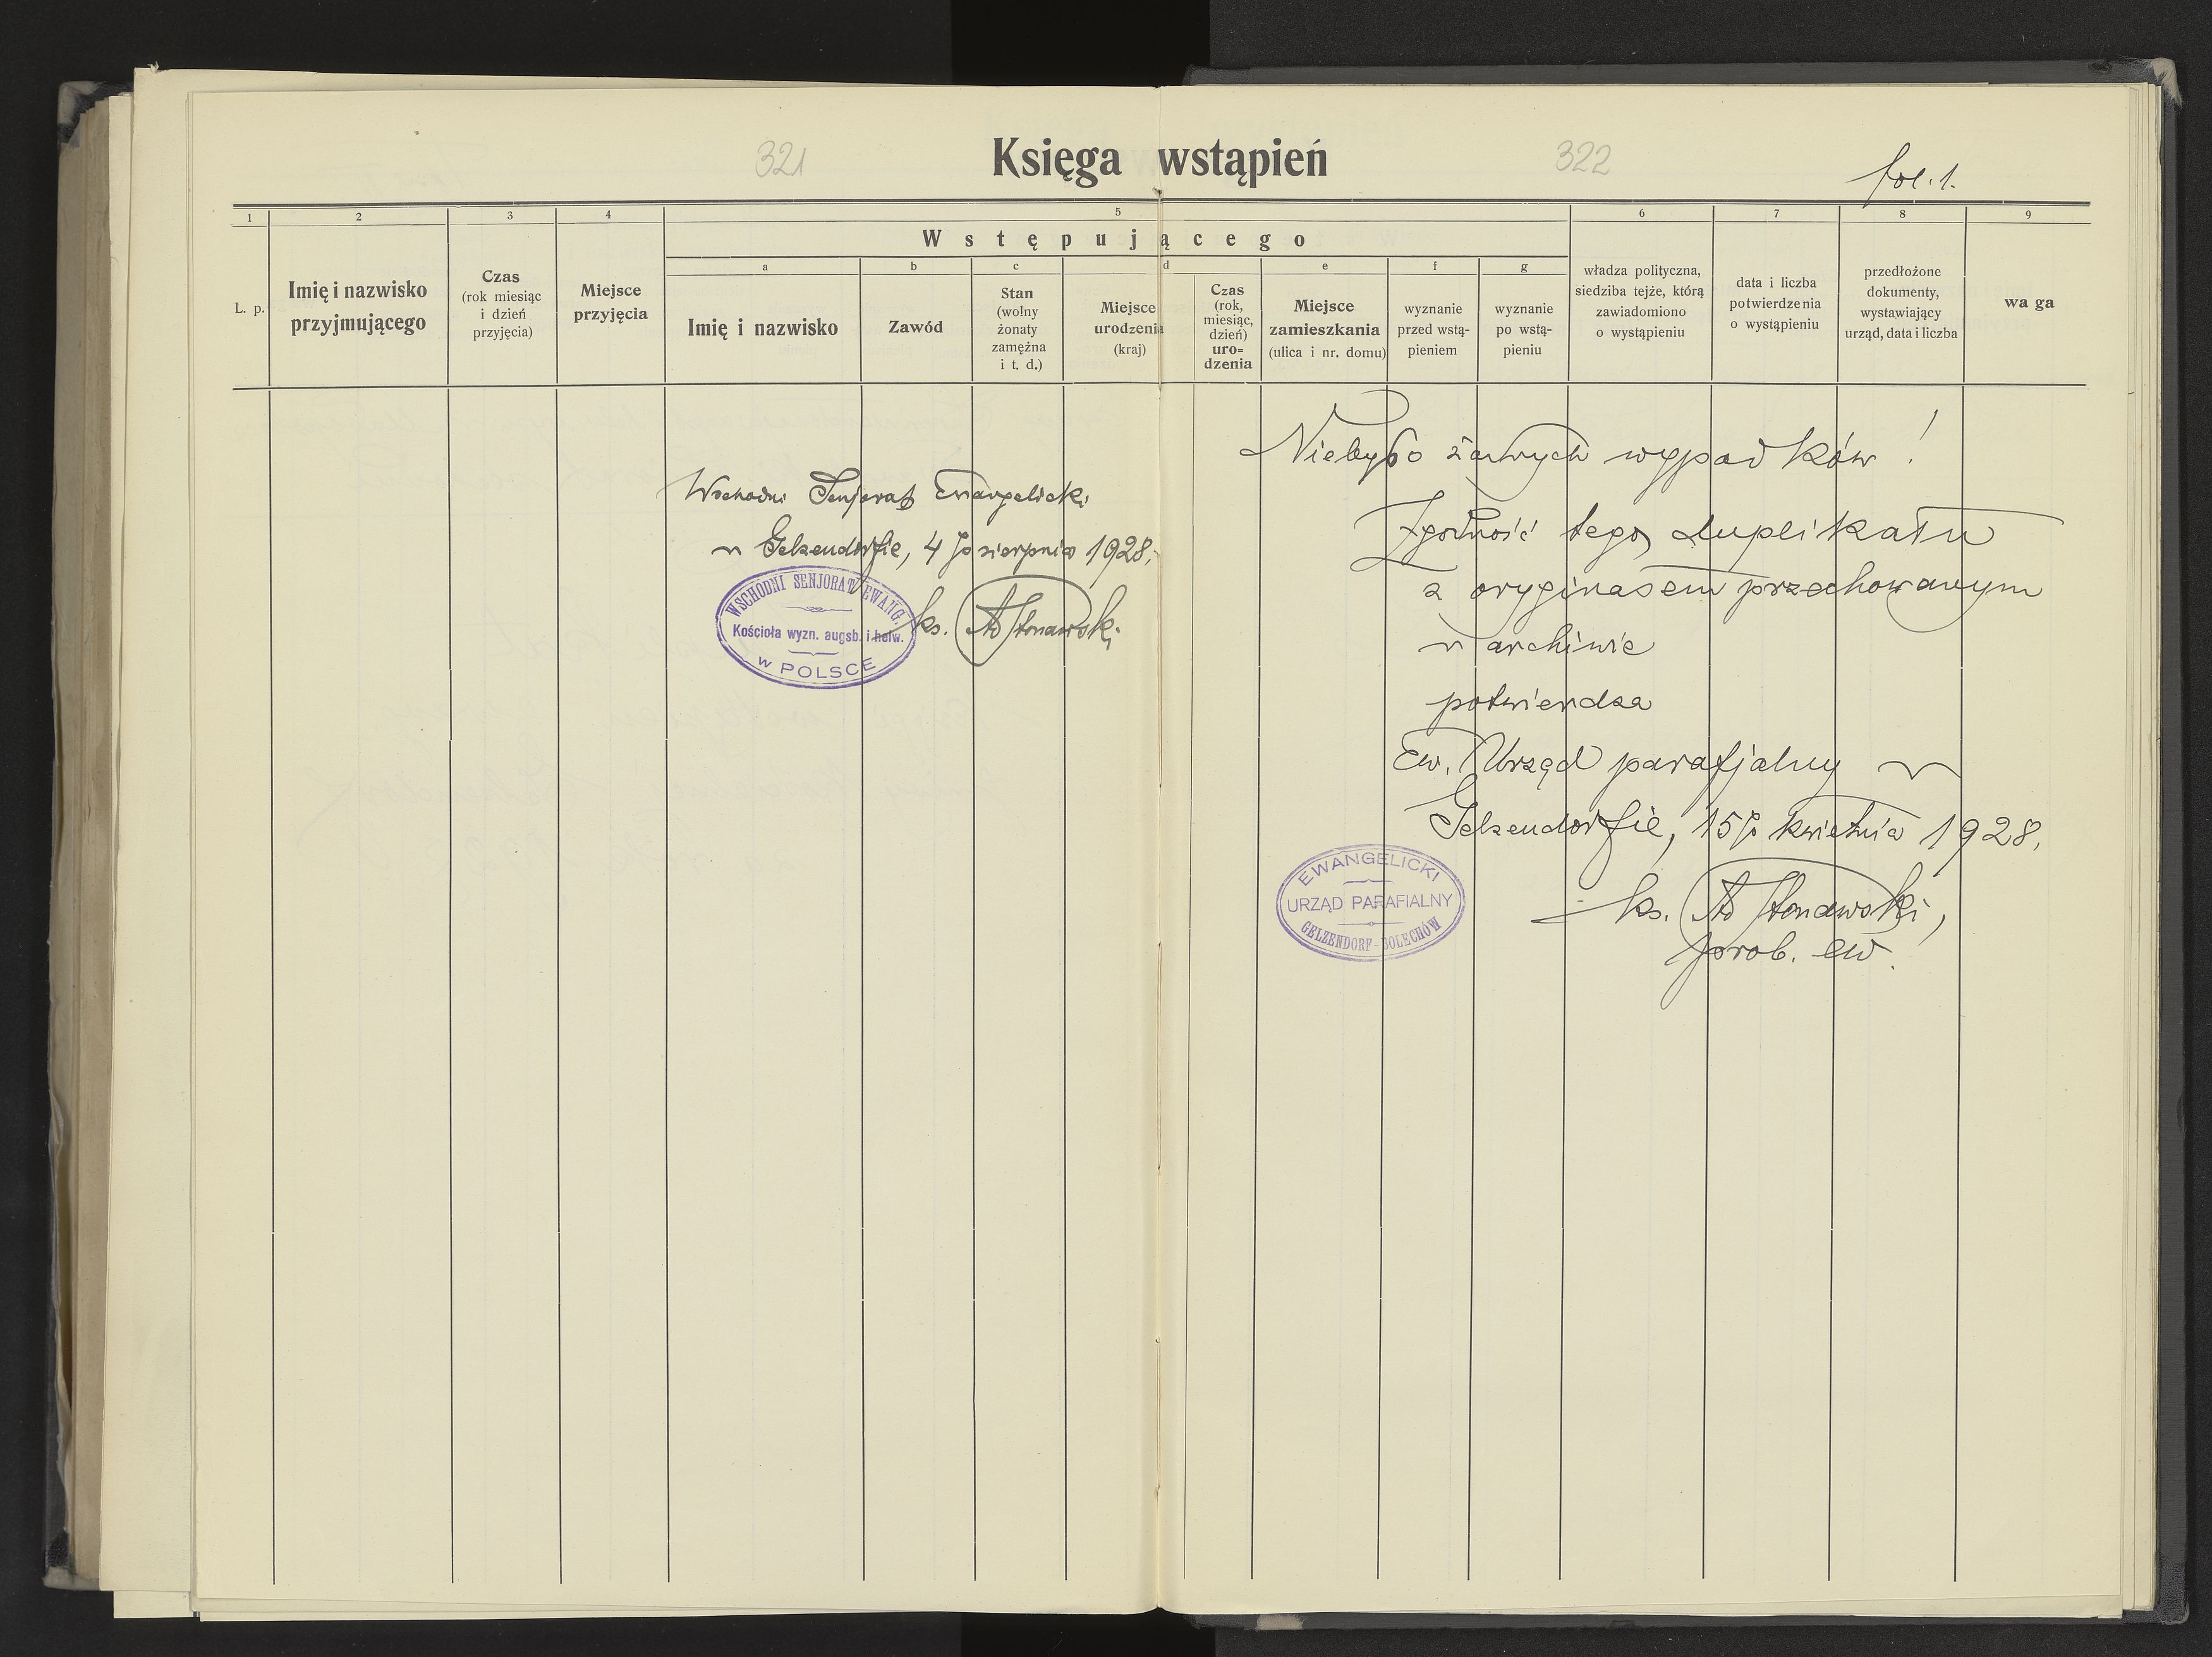 321
Księga wstąpień
322
fol. 1.
1 2 3 4 5 6 7 8 9
Wstępującego
a b c d e f g
L. p.
Imię i nazwisko
przyjmującego
Czas
(rok miesiąc
i dzień
przyjęcia)
Miejsce
przyjęcia
Imię i nazwisko
Zawód
Stan
(wolny
żonaty
zamężna
i t. d.)
Miejsce
urodzenia
(kraj)
Czas
(rok,
miesiąc,
dzień)
uro=
dzenia
Miejsce
zamieszkania
(ulica i nr. domu)
wyznanie
przed wstą-
pieniem
wyznanie
po wstą-
pieniu
władza polityczna,
siedziba tejże, którą
zawiadomiono
o wystąpieniu
data i liczba
potwierdzenia
o wystąpieniu
przedłożone
dokumenty,
wystawiający
urząd, data i liczba
wa ga
Wschodni Senjorat Ewangelicki
w Gelsendorfie, 4 go sierpnia 1928.
WSCHODNI SENJORAT EWANG.
Kościoła wyzn. augsb. i helw.
w POLSCE
ks.
Stonawski
Niebyło żadnych wypadków!
Zgodność tego duplikatu
z oryginałem przechowanym
w archiwie
potwierdza
Ew. Urząd parafjalny w
Gelsendorfie, 15 go kwietnia 1928.
EWANGELICKI
URZĄD PARAFIALNY
GELZENDORF-BOLECHÓW
ks.
Stonawski,
prob. ew.